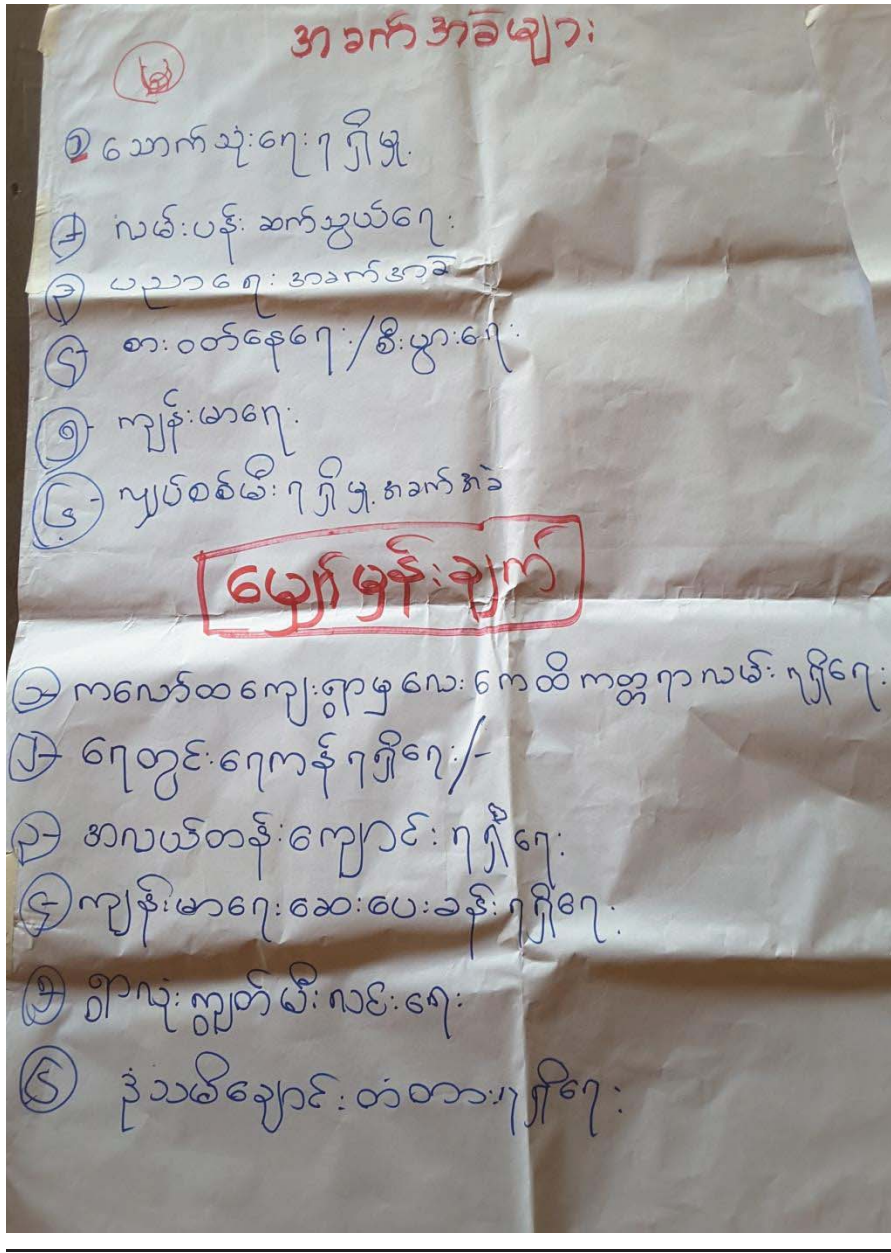 အခက်အခဲများ
၁ သောက်သုံးရေးရရှိမှု.
၂ လမ်းပန်း ဆက်သွယ်ရေး
၃ ပညာရေး အခက်အခဲ
၄ စားဝတ်နေရေး/စီးပွားရေး
၅ ကျန်းမာရေး
၆ လျှပ်စစ်မီးရရှိမှု.အခက်အခဲ
မျှော်မှန်းချက်
၁ ကလော်ထကျေးရွာမှလေးကေထိကတ္တရာလမ်း ရရှိရေး
၂ ရေတွင်းရေကန်ရရှိရေး/-
၃ အလယ်တန်းကျောင်းရရှိရေး
၄ ကျန်းမာရေးဆေးပေးခန်းရရှိရေး
၅ ရွာလုံးကျွတ်မီးလင်းရေး
၆ ဒုံသမိချောင်းတံတားရရှိရေး